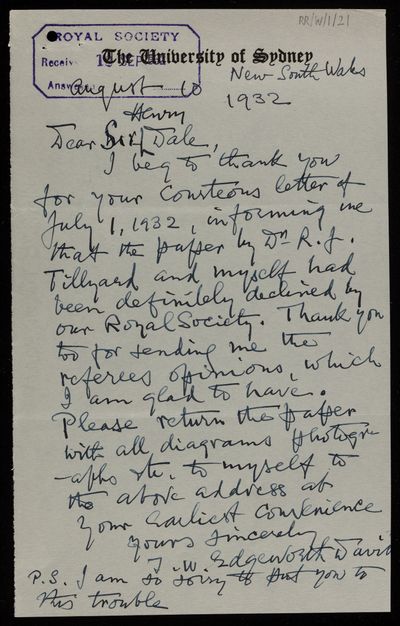 RR/W/1/21
ROYAL SOCIETY
The University of Sydney
Receiv
SEP
New South Wales
Answ
August 10
1932
Henry
Dear Sir Dale,
I beg to thank you
for your Courteous letter of
July 1, 1932, informing me
that the paper by Dr R. J.
Tillyard and myself had
been definitely declined by
our Royal Society. Thank you
too for sending me the
referees opinions, which
I am glad to have.
Please return the paper
with all diagrams photogra
-aphs etc. to myself to
the above address at
your earliest Convenience
yours sincerely
T. W. Edgeworth David
P.S. I am so sorry to put you to
this trouble